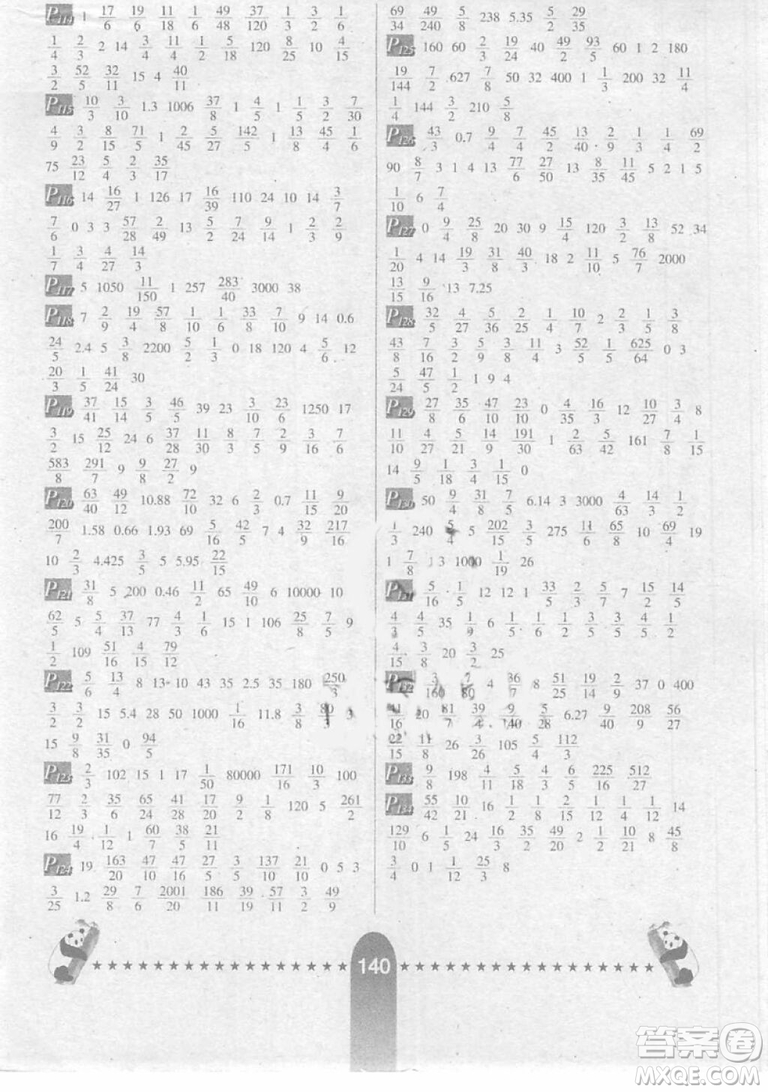 P114 1 17/6 19/6 11/18 1 49/48 37/120 1/3 3/1 1/6
1/4 2/3 2 14 3/4 4/11 1/2 5/18 120 8/10 4/15
3/2 52/5 32/11 15 4 40/11
P115 10/3 3/10 1.3 1006 37/8 1 4/5 1 1/5 3/2 7/30
4/9 3/2 8/15 71/5 1 2/45 27/5 142/5 1 13/8 45/4 1/6
75 23/12 5/4 2/3 35/17
P116 14 16/27 1 126 17 16/39 110 24 10 14 3/7
7/6 0 3 3 57/28 28/49 2/9 13 5/2 7/24 9/14 1 2/3 2/9
1/7 3/4 4/27 14/3
P117 5 1050 11/150 1 257 283/40 3000 38
P118 7 2/9 19/4 57/8 1/10 1/6 33/8 7/10 9 14 0.6
24/5 2.4 5 3/8 2200 5/2 1/3 0 18 120 4 5/6 12
20/3 1/5 41/24 30
P119 37/41 15/14 3/5 46/5 39 23 3/10 23/6 1250 17
3/2 15 25/12 24 6 37/28 28/30 11/3 8/5 7/2 2/3 3/6 7/6
583/8 291/7 9 9/8 27/2 9
P120 63/40 49/12 10.88 72/10 32 6 2/3 0.7 11/15 9/20
200/7 1.58 0.66 1.93 69 5/16 42/5 7 4 32/27 217/16
10 2/3 4.425 3/5 5 5.95 22/15
P121 31/8 5 200 0.46 11/2 65 49/10 6 10000 10
62/5 5 5/4 37/13 77 4/3 1/6 15 1 106 25/8 7/5 9
1/2 109 51/16 4/15 79/12
P122 5/6 13/4 8 13 10 43 35 2.5 35 180 250/3
3/2 3/2 15 5.4 28 50 1000 1/16 11.8 3/8 80/3 3
15 9/8 31/35 0 94/5
P123 2/3 102 15 1 17 1/50 80000 171/16 10/3 100
77/12 3/2 35/6 65/12 41/20 17/20 9/2 1/8 120 5 261/2
16 19/4 1/3 1 60/7 38/15 21/11
P124 19 163/20 47/10 47/20 27/5 3/5 137/10 21/10 0 5 3
3/25 1.2 29/8 7/6 2001/20 186/11 39/20 57/11 3/12 49/9
69/34 49/240 5/8 238 5.35 5/2 29/35
P125 160 60 2/3 19/24 40 49/2 93/5 60 1 2 180
19/144 7/2 627 7/8 50 32 400 1 1/3 200 32 11/4
1/4 144 3/2 210 5/8
P126 43/3 0.7 9/4 7/4 45/2 13/40 2/9 1/3 1/4 1 69/2
90 8/7 3 1 4 13 77/6 27/50 13 8/35 11/15 5 2 1 5
1/10 6 7/4
P127 0 9/4 25/8 20 30 9 15/4 120 3/2 13/8 52 34
1/20 4 14 19/3 31/40 38/15 18 2 11/10 5 76/7 2000
13/15 9/16 13 7.25
P128 32/5 4/27 5/36 2/25 1/4 10/7 2 2/3 1/5 3/8
43/8 8/16 7/2 3/9 5/8 11/4 3 52/5 1/5 625/64 0 3
5/24 47/5 1/2 1 9 4
P129 27/8 35/6 47/10 23/10 0 4/35 16/3 12 10/27 3/4 8
11/10 4/27 21/5 14/9 191/30 1 2/63 42/5 161 7/8 1/15
14 9/5 1/3 3/4 1/15 0
P130 50 9/4 31/8 7/5 6.14 3 3000 4/63 14/3 1/14
1/3 240 5/4 5 202/15 3/5 275 11/6 65/8 10 69/4 19
1 7/8 13 1000 1/19 26
P131 5/16 1/5 12 12 1 33/5 2/3 7/5 7 15/2 14/5
4/3 4/5 35 1/9 6 1/5 1/5 1/3 1/2 5/3 5/2 5/8
4/15 3/8 20 2/3 25
P132 3/160 7/80 4 36/7 8 51/35 19/14 2/9 37 0 400
20 81/7 39/4 9/140 5/28 6.27 9/40 208/9 56/27
22/15 11/8 26 3/28 105 5/4 112/3
P133 9/8 198 4/11 5/18 4/3 6/5 225/16 512/27
P134 55/42 10/21 16 1/2 1/8 2/15 1/4 1/12 14
129/10 6 1/5 24 16/3 38/9 2 1/2 10/9 8 45/8
3/4 0 1 1/12 25/3 8
140
答案卷
MXQE.COM